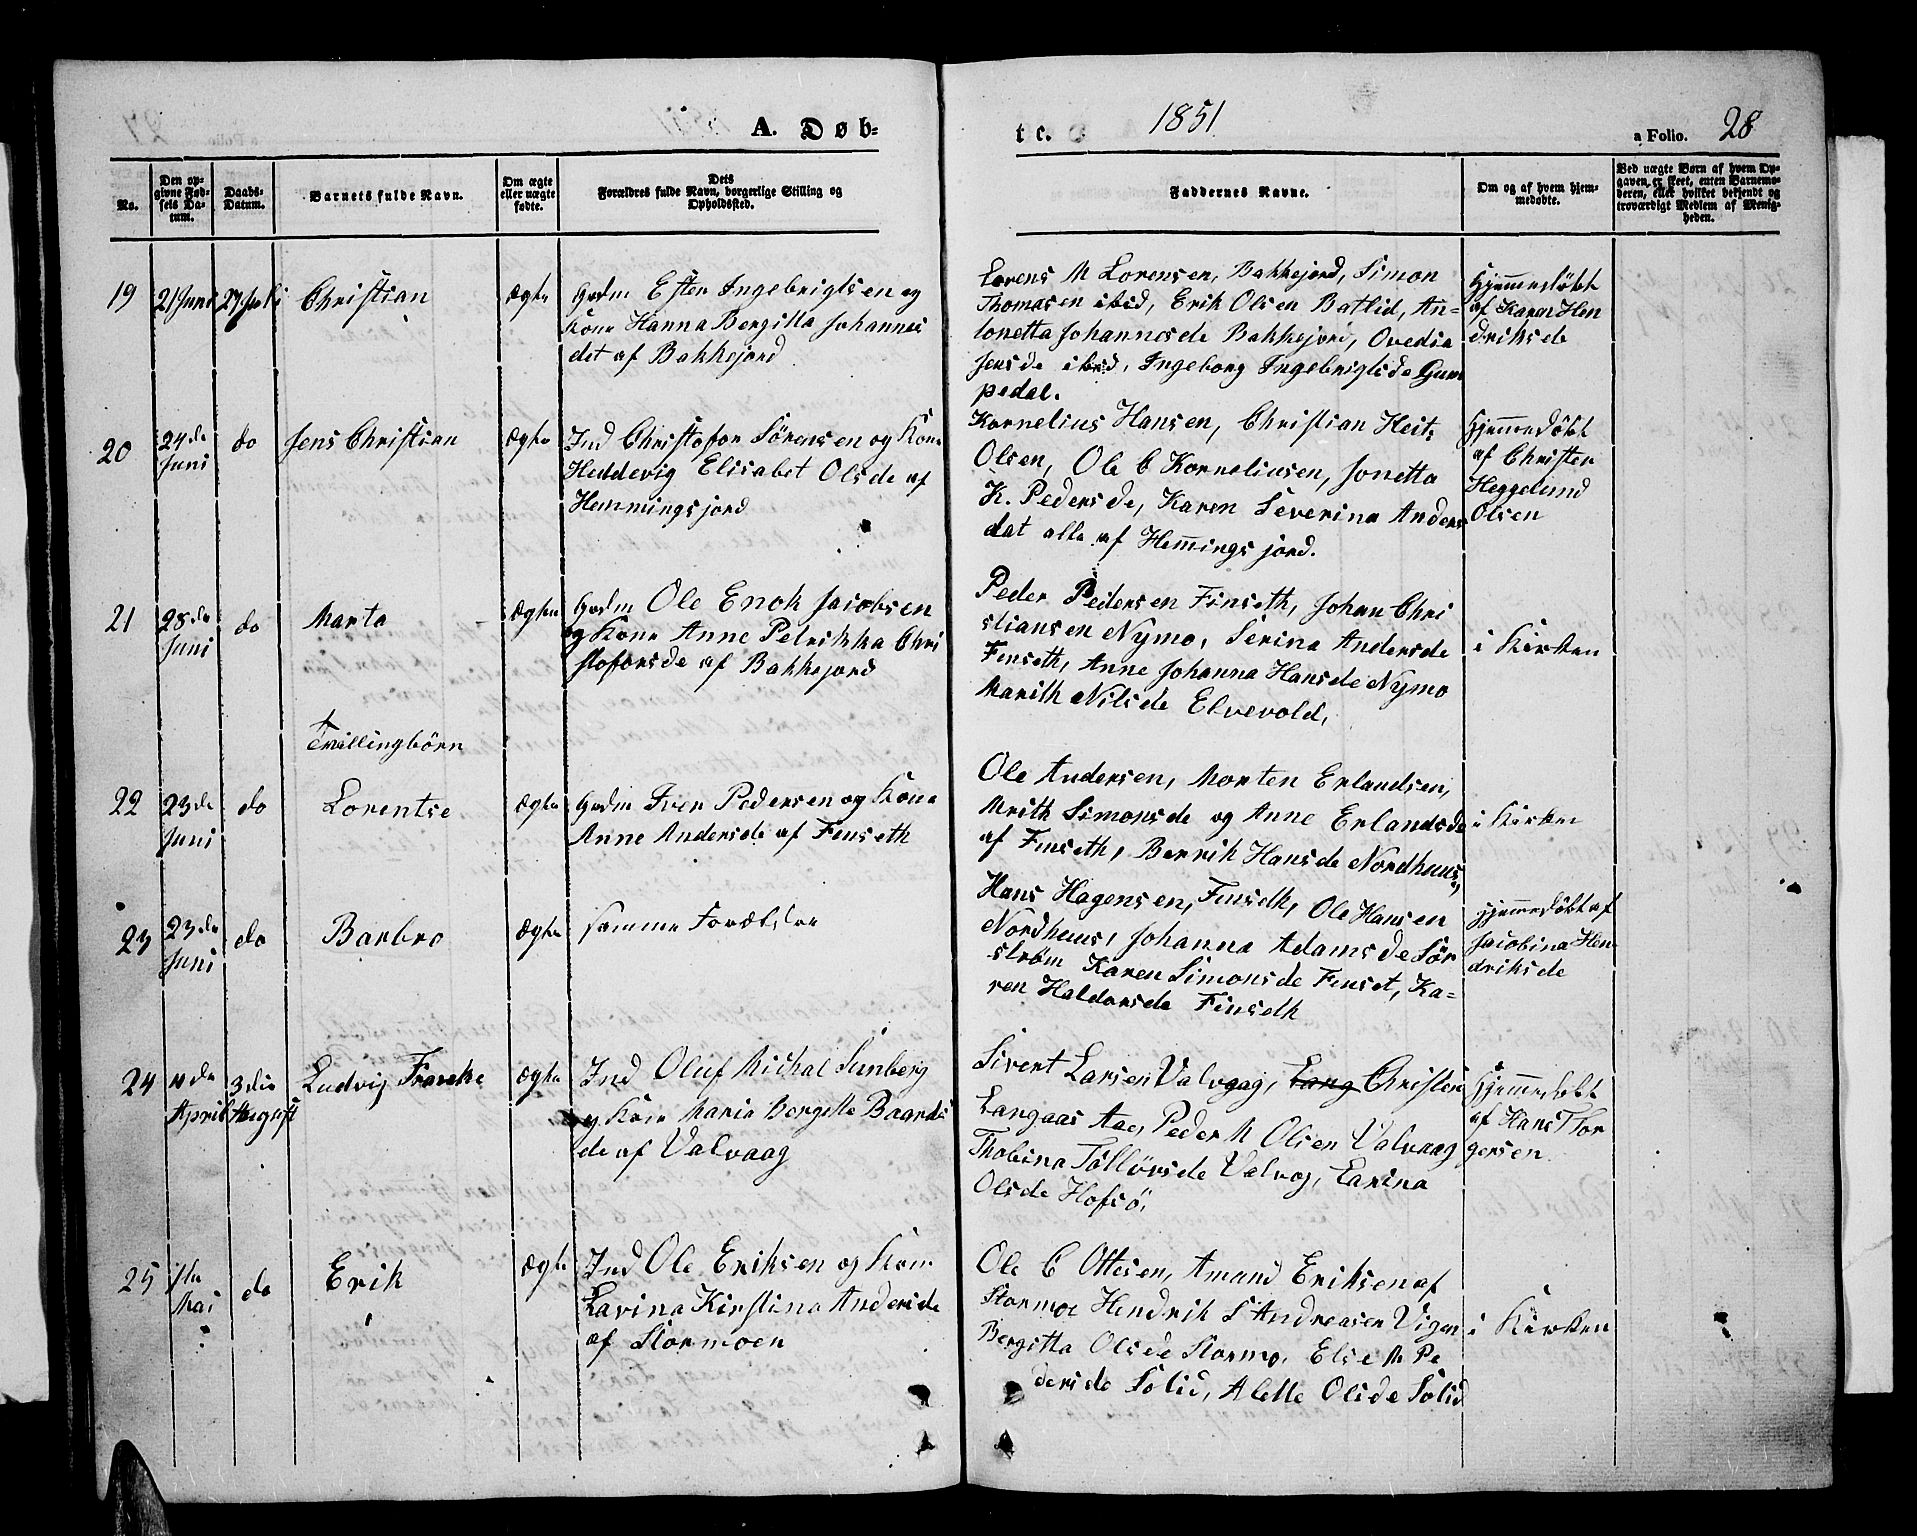 A. Døb-
te.
1851
a Folio. 28
No.
Den op-
givne Fød-
sels Da-
tum.
Daabs-
Datum.
Barnets fulde Navn.
Om ægte
eller uægte
fødte.
Dets
Forældres fulde Navn, borgerlige Stilling og
Opholdssted.
Faddernes Navne.
Om og af hvem hjem-
medøbte.
Ved uægte Børn af hvem Op-
gaven er skeet, enten Barnemo-
deren, eller hvilket bekjendt og
troværdigt Medlem af Menig-
heden.
19
21 Juni
27 Juli
Christian
Ægte
Gdm Ester Ingebrigtsen og
Kone Hanna Bergitta Johannes
det af Bakkejord
Lorens M Lorensen, Bakkejord, Simon
Thomasen ibid, Erik Olsen Batlid, An-
tonetta Johannesde Bakkejord, Ovedia
Jensde ibid, Ingeborg Ingebrigtsde Gum
pedal.
Hjemmedöbt
af Karen Hen
driksde
20
24de
Juni
do
Jens Christian
Ægte
Ind Christofor Sörensen og Kone
Heddevig Elisabet Olsde af
Hemmingsjord
Kornelius Hansen, Christian Heits
Olsen, Ole C Korneliusen, Jonetta
K. Pedersde, Karen Severina Anders
dat alle af Hemmingsjord.
Hjemmedöbt
af Christen
Heggelund
Olsen
21
28de
Juni
do
Marta
Ægte
Gdm Ole Enok Jacobsen
og Kone Anne Petrikka Chri
stoforsde af Bakkejord
Peder Pedersen Finseth, Johan Chri
stiansen Nymo, Serina Andersde
Finseth, Anne Johanna Hansde Nymo
Marith Nilsde Elvevold,
i Kirken
Tvillingbörn
22
23de
Juni
do
Lorentse
Ægte
Gdm Iver Pedersen og Kone
Anne Andersde af Finseth
Ole Andersen, Morten Erlandsen,
Mrith Simonsde og Anne Erlandsde
af Finseth, Berrik Hansde Nordhuus,
i Kirken
23
23de
Juni
do
Barbro
Ægte
samme Forældre
Hans Hagensen, Finseth, Ole Hansen
Nordhuus, Johanna Adamsde Sör
ström Karen Simonsde Finset, Ka-
ren Haldorsde Finseth
Hjemmedöbt af
Jacobina Hen
driksde
24
11de
April
3die
August
Ludvig Franke
Ægte
Ind Oluf Michal Sunberg
og Kone Maria Bergitte Baards
de af Valvaag
Sivert Larsen Valvaag, Lang Christen
Langaas Aae, Peder M Olsen Valvaag
Thobina Tollörsde Valvog, Larina
Olsde Hofsö,
Hjemmedöbt
af Hans Thor
gersen
25
1ste
Mai
do
Erik
Ægte
Ind Ole Eriksen og Kone
Lavina Kirstina Andersde
af Stormoen
Ole C Ottesen, Amand Eriksen af
Stormoe Hendrik S Andreasen Vigen
Bergitta Olsde Stormo, Else M Pe
dersde Solid, Alette Olsde Solid
i Kirken